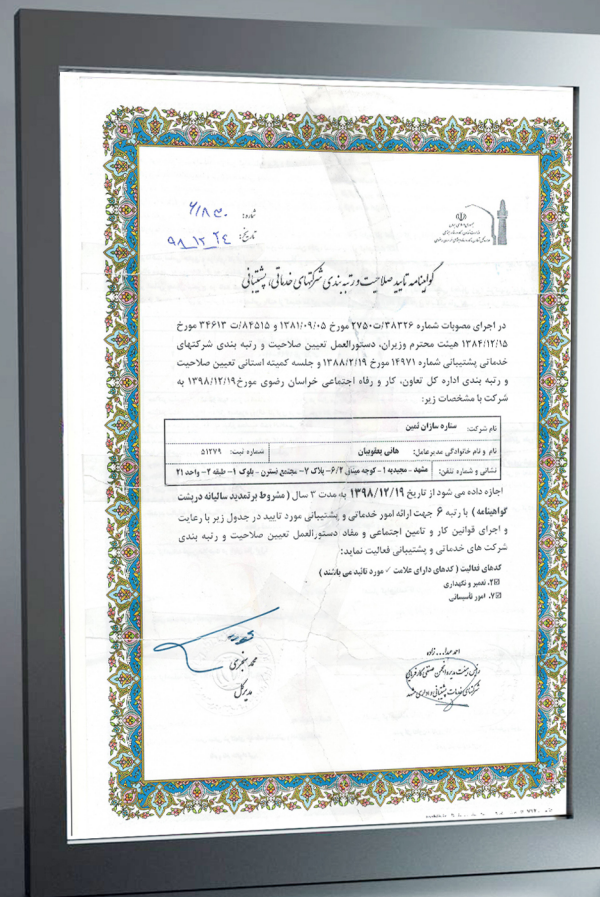 شماره:
تاریخ: ۹۸_۱۲_۲۴
گواهینامه تایید صلاحیت و رتبه بندی شرکتهای خدماتی، پشتیبانی
در اجرای مصوبات شماره ۳۸۳۲۶/ت۲۷۵۰ مورخ ۱۳۸۱/۰۹/۰۵ و ۸۴۵۱۵/ت ۳۴۶۱۳ مورخ
۱۳۸۴/۱۲/۱۵ هیئت محترم وزیران، دستورالعمل تعیین صلاحیت و رتبه بندی شرکتهای
خدماتی پشتیبانی شماره ۱۴۹۷۱ مورخ ۱۳۸۸/۲/۱۹ و جلسه کمیته استانی تعیین صلاحیت
و رتبه بندی اداره کل تعاون، کار و رفاه اجتماعی خراسان رضوی مورخ ۱۳۹۸/۱۲/۱۹ به
شرکت با مشخصات زیر:
نام شرکت: ستاره سازان ثمین
نام و نام خانوادگی مدیرعامل: هانی یعقوبیان شماره ثبت: ۵۱۲۷۹
نشانی و شماره تلفن: مشهد - مجیدیه ۱- کوچه میثاق ۶/۲- پلاک ۷- مجتمع نسترن - بلوک ۱- طبقه ۲- واحد ۲۱
اجازه داده می شود از تاریخ ۱۳۹۸/۱۲/۱۹ به مدت ۳ سال ( مشروط بر تمدید سالیانه در پشت
گواهینامه ) با رتبه ۶ جهت ارائه امور خدماتی و پشتیبانی مورد تایید در جدول زیر با رعایت
و اجرای قوانین کار و تامین اجتماعی و مفاد دستورالعمل تعیین صلاحیت و رتبه بندی
شرکت های خدماتی و پشتیبانی فعالیت نماید:
کدهای فعالیت ( کدهای دارای علامت ✓ مورد تائید می باشند )
☑۲. تعمیر و نگهداری
☑۷. امور تأسیساتی
احمد عبدا... زاده
رئیس هیئت مدیره انجمن صنفی کارفرمائی
شرکتهای خدمات پشتیبانی و اداری مشهد
محمد سنجری
مدیرکل